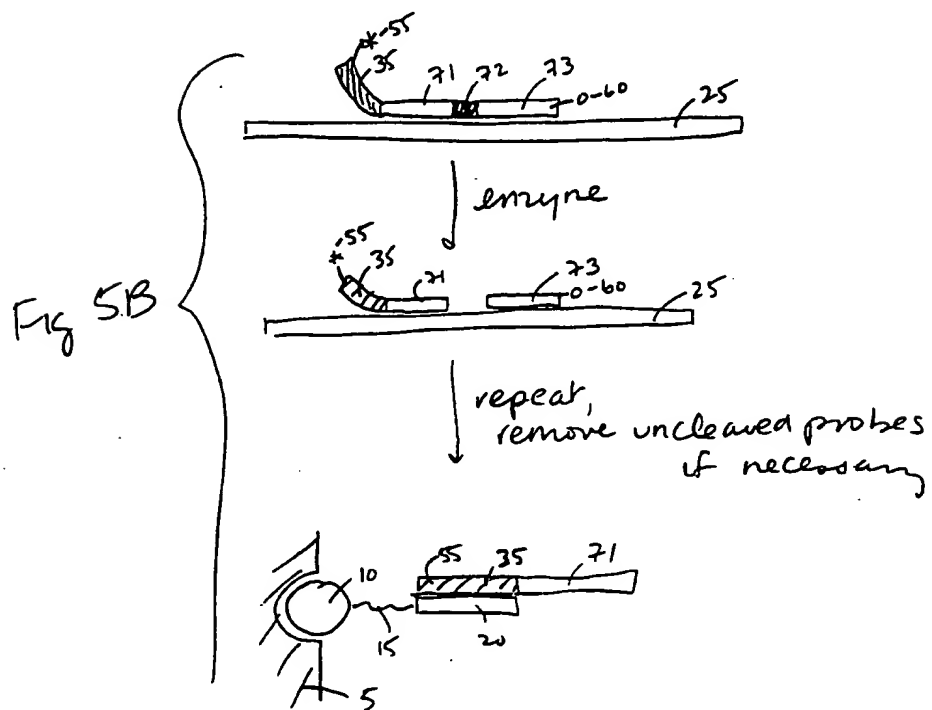 *-55
35
71 72 73
0-60
25
enzyme
*-55
35
71
73
0-60
25
Fig 5B
repeat,
remove uncleaved probes
if necessary
10
55 35 71
15
20
5